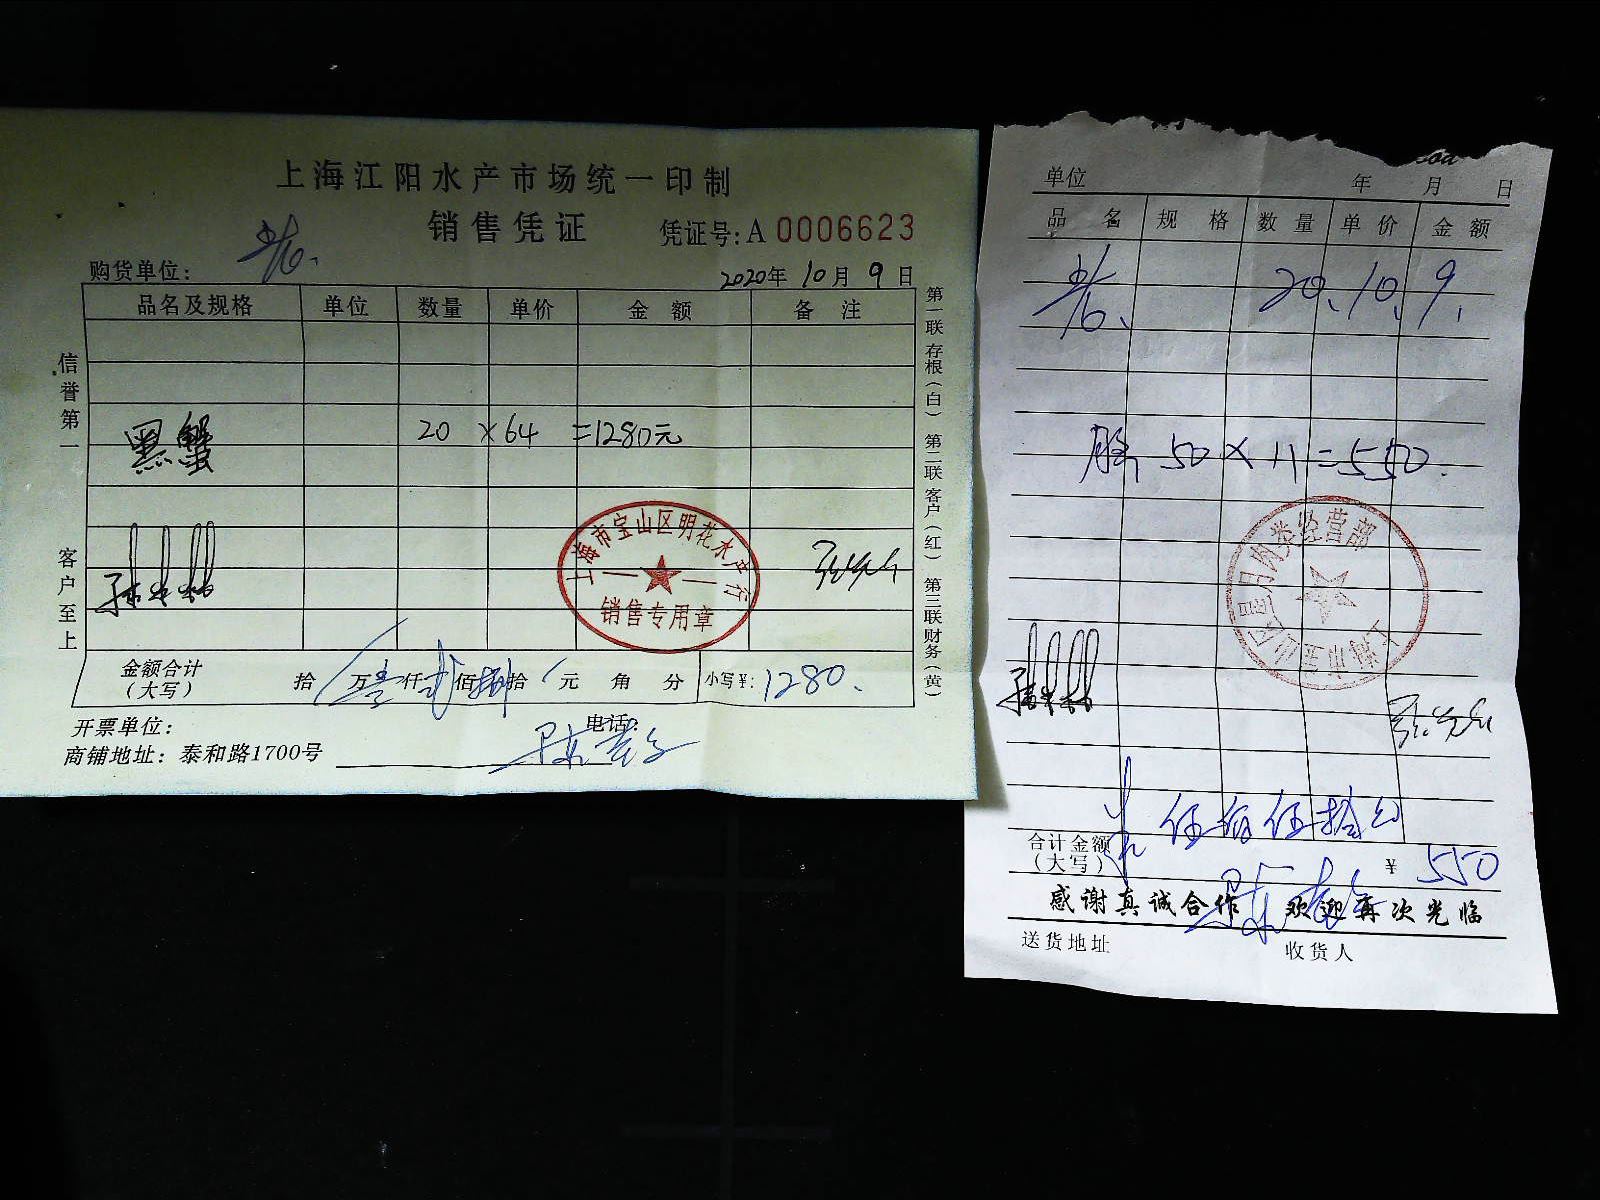 上海江阳水产市场统一印制
销售凭证 凭证号:A 0006623
购货单位:
2020年 10月 9日
品名及规格 单位 数量 单价 金额 备注
黑蟹 20 × 64 =1280元
上海市宝山区明花水产行
销售专用章
金额合计
(大写)
拾 万壹仟贰佰捌拾 元 角 分 小写¥: 1280.
开票单位: 电话:
商铺地址: 泰和路1700号
信誉第一
客户至上
第一联存根(白) 第二联客户(红) 第三联财务(黄)
单位 年 月 日
品名 规格 数量 单价 金额
20.10.9.
50×11=550.
肉类经营部
伍佰伍拾
合计金额
(大写) ¥ 550
感谢真诚合作 欢迎再次光临
送货地址 收货人